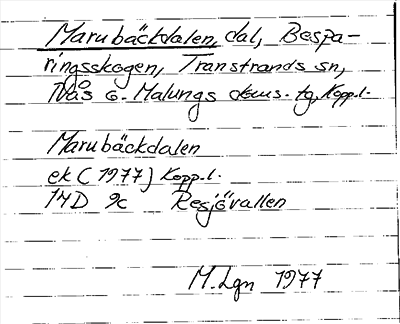 Marubäckdalen, dal, Bespa-
ringsskogen, Transtrands sn,
Nås o. Malungs doms. tg, Kopp.l.
Marubäckdalen
ek (1977) Kopp.l.
14D 9c Resjövallen
M. Lgn 1977